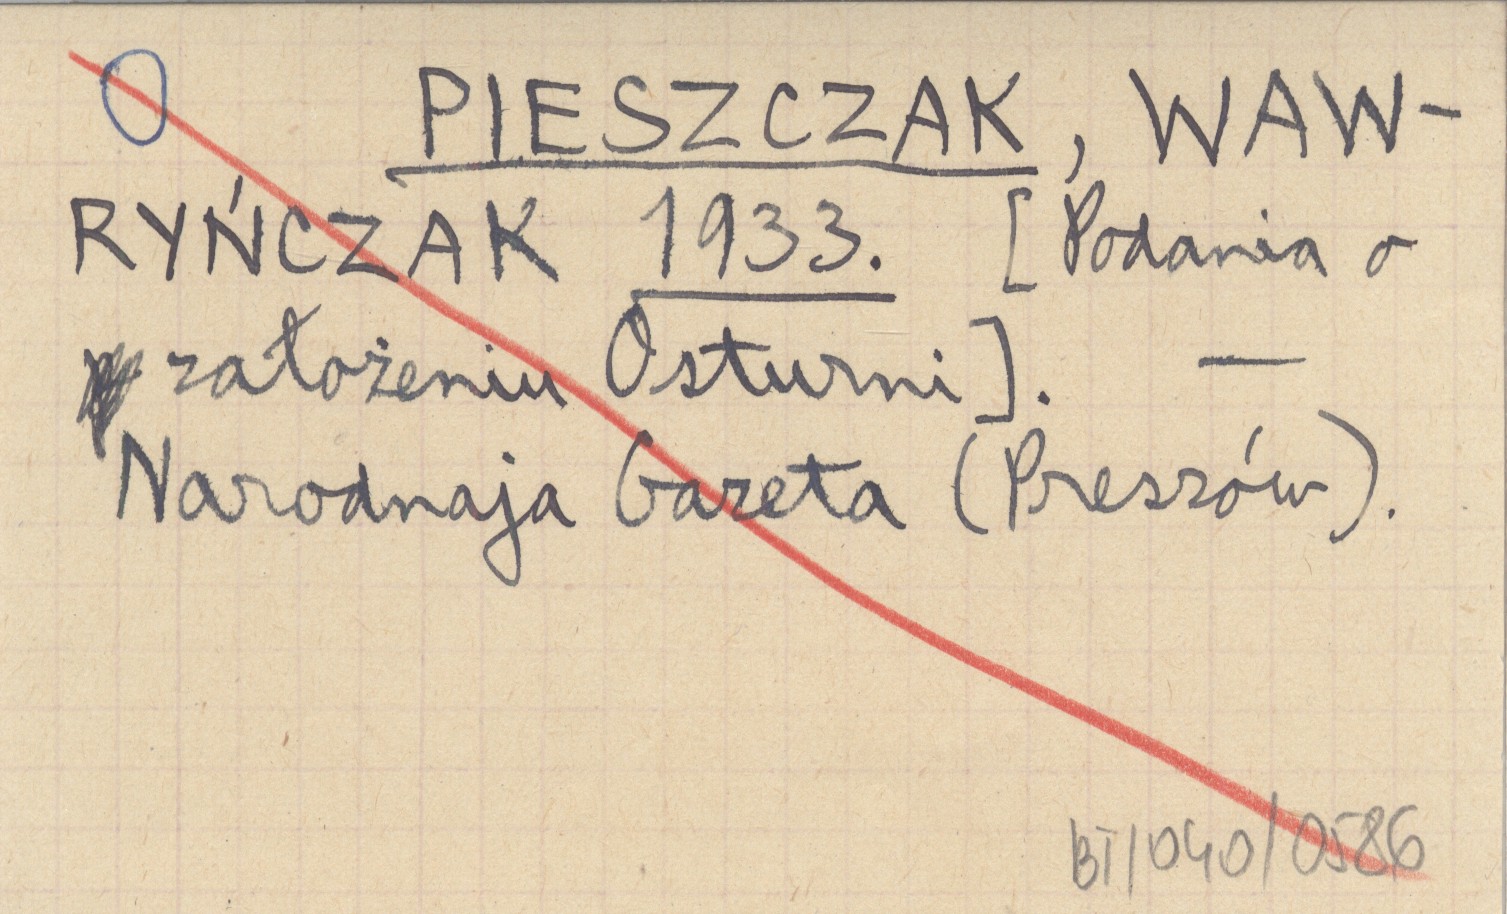 PIESZCZAK, WAW-
RYŃCZAK 1933. [Podania o
założeniu Osturni]. —
Narodnaja Gazeta (Preszów).
BT/040/0586